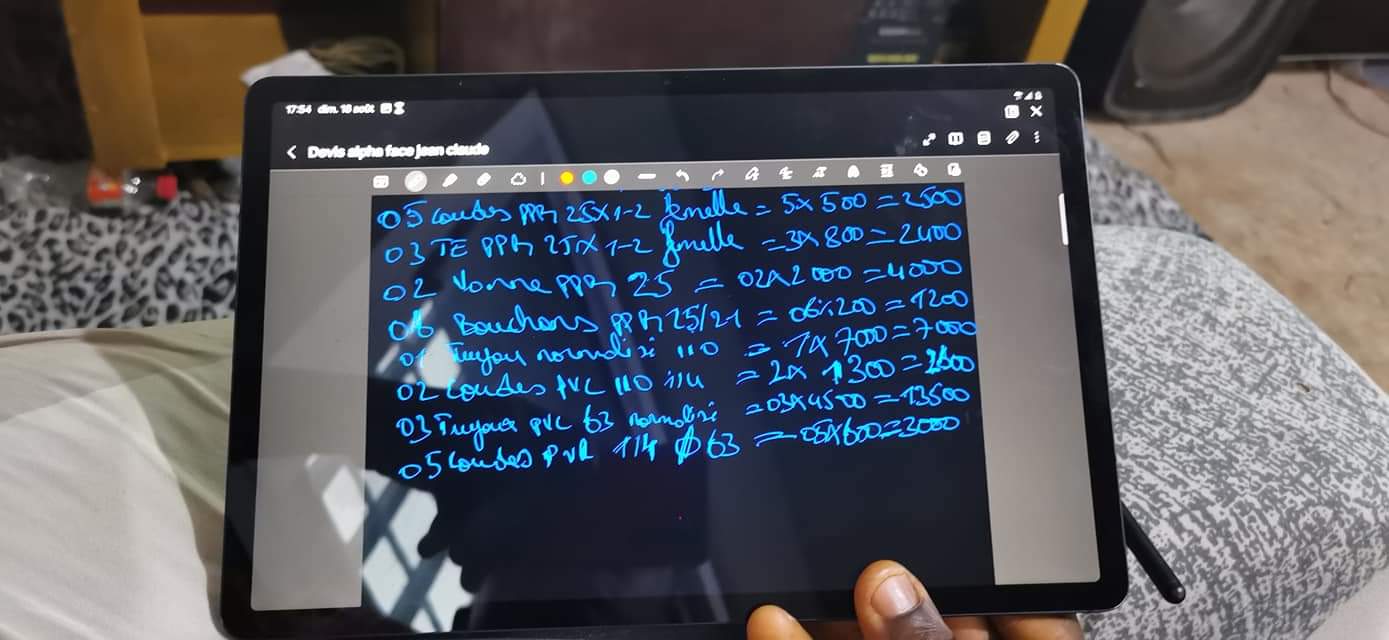 17:54 dim. 18 août
Devis alpha face jean claude
05 Coudes PPR 25X1-2 femelle = 5x500 = 2500
03 TE PPR 25X1-2 femelle = 3x800 = 2400
02 Vanne PPR 25 = 02x2000 = 4000
06 Bouchons PPR 25/21 = 06x200 = 1200
01 Tuyau normalisé 110 = 1x7000 = 7000
02 Coudes PVC 110 1/4 = 2x1300 = 2600
03 Tuyaux PVC 63 normalisé = 03x4500 = 13500
05 Coudes 1/4 Ø 63 = 05x600 = 3000